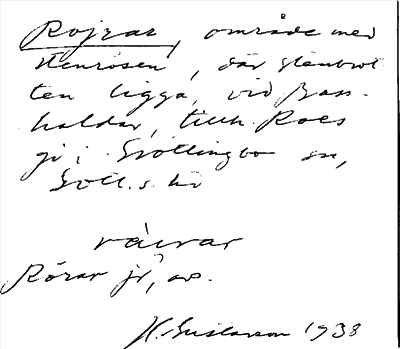 Rojrar, område med
stenrösen, där stenbrot
ten ligga, vid Bass-
haldar, tillh. Roes
gå i Grötlingbo sn,
Gotl. s. hd
råirar
Rörar jr, os.
H. Gustavson 1938